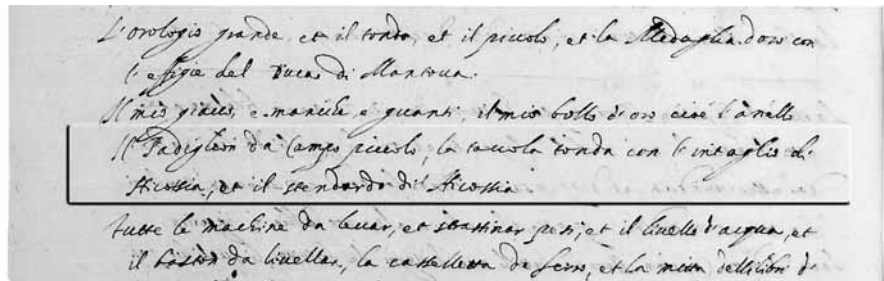 L'orologio grande et il tondo, et il piccolo, et la Medaglia d'oro con
l'effigie del Duca di Mantova.
Il mio giaco, e maniche e guanti, il mio bollo d'oro cioè l'anello
Il Padiglion da Campo piccolo, la tavola tonda con l'intaglio di
Nicossia, et il stendardo di Nicossia
Tutte le machine da levar, et strassinar pesi, et il livello d'acqua, et
il baston da livellar, la casselletta de ferro, et la delli libri d